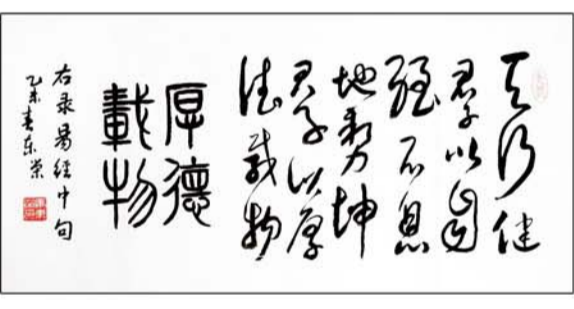 天行健
君子以自
强不息
地势坤
君子以厚
德载物
厚德
載物
右录易經中句
乙未春东荣